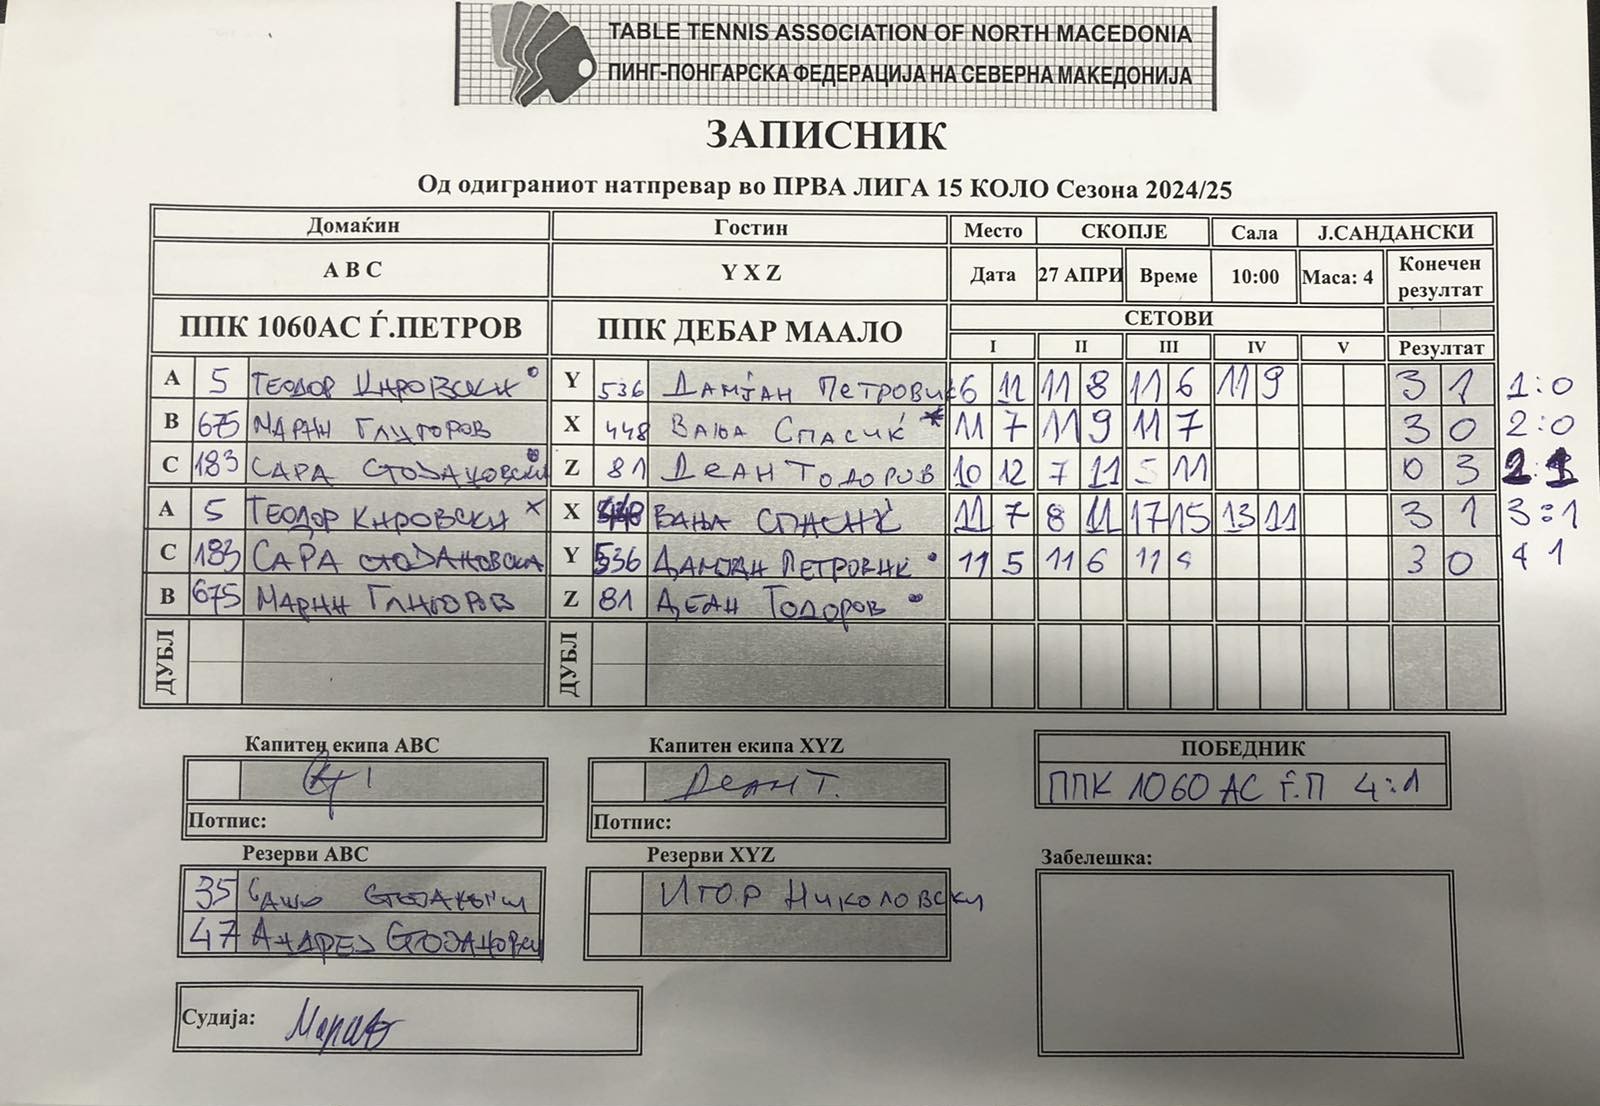 TABLE TENNIS ASSOCIATION OF NORTH MACEDONIA
ПИНГ-ПОНГАРСКА ФЕДЕРАЦИЈА НА СЕВЕРНА МАКЕДОНИЈА
ЗАПИСНИК
Од одиграниот натпревар во ПРВА ЛИГА 15 КОЛО Сезона 2024/25
Домаќин Гостин Место СКОПЈЕ Сала Ј.САНДАНСКИ
A B C Y X Z Дата 27 АПРИ Време 10:00 Маса: 4 Конечен резултат
ППК 1060АС Ѓ.ПЕТРОВ ППК ДЕБАР МААЛО СЕТОВИ
I II III IV V Резултат
A 5 ТЕОДОР КИРОВСКИ Y 536 ДАМЈАН ПЕТРОВИЌ 6 11 11 8 11 6 11 9 3 1 1:0
B 675 МАРИН ГЛИГОРОВ X 448 ВАЊА СПАСИЌ * 11 7 11 9 11 7 3 0 2:0
C 183 САРА СТОЈАНОВСКА Z 81 ДЕАН ТОДОРОВ 10 12 7 11 5 11 0 3 2:1
A 5 ТЕОДОР КИРОВСКИ X X ВАЊА СПАСИЌ 11 7 8 11 17 15 13 11 3 1 3:1
C 183 САРА СТОЈАНОВСКА Y 536 ДАМЈАН ПЕТРОВИЌ 11 5 11 6 11 3 0 4 1
B 675 МАРИН ГЛИГОРОВ Z 81 ДЕАН ТОДОРОВ
ДУБЛ ДУБЛ
Капитен екипа ABC Капитен екипа XYZ ПОБЕДНИК
ДЕАН Т. ППК 1060 АС Ѓ.П 4:1
Потпис: Потпис:
Резерви ABC Резерви XYZ Забелешка:
35 САШО ИГОР НИКОЛОВСКИ
47 АНДРЕЈ СТОЈАНОВСКИ
Судија: